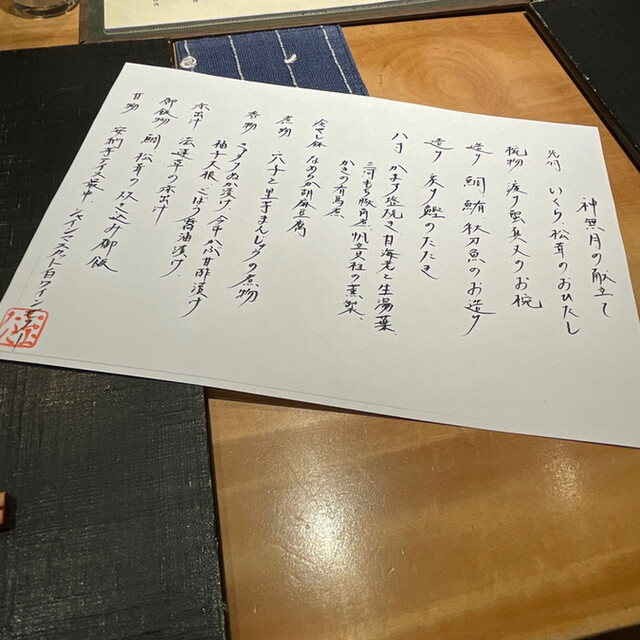 神無月の献立て
先付 いくら、松茸のおひたし
椀物 渡り蟹真丈のお椀
造り 鯛 鮪 秋刀魚のお造り
造り 炙り鰹のたたき
八寸 かます塩焼き 甘海老と生湯葉
三河もち豚角煮 帆立貝柱の薫製
かきの有馬煮
冷さし鉢 なめらか胡麻豆腐
煮物 穴子と里芋まんじゅうの煮物
香物 きゅうりぬか漬け 今年かぶ甘酢漬け
柚子大根 ごぼう醤油漬け
本出汁 法蓮草の本出汁
御飯物 鯛 松茸の炊き込み御飯
甘物 安納芋アイス最中 シャインマスカット白ワインゼリー